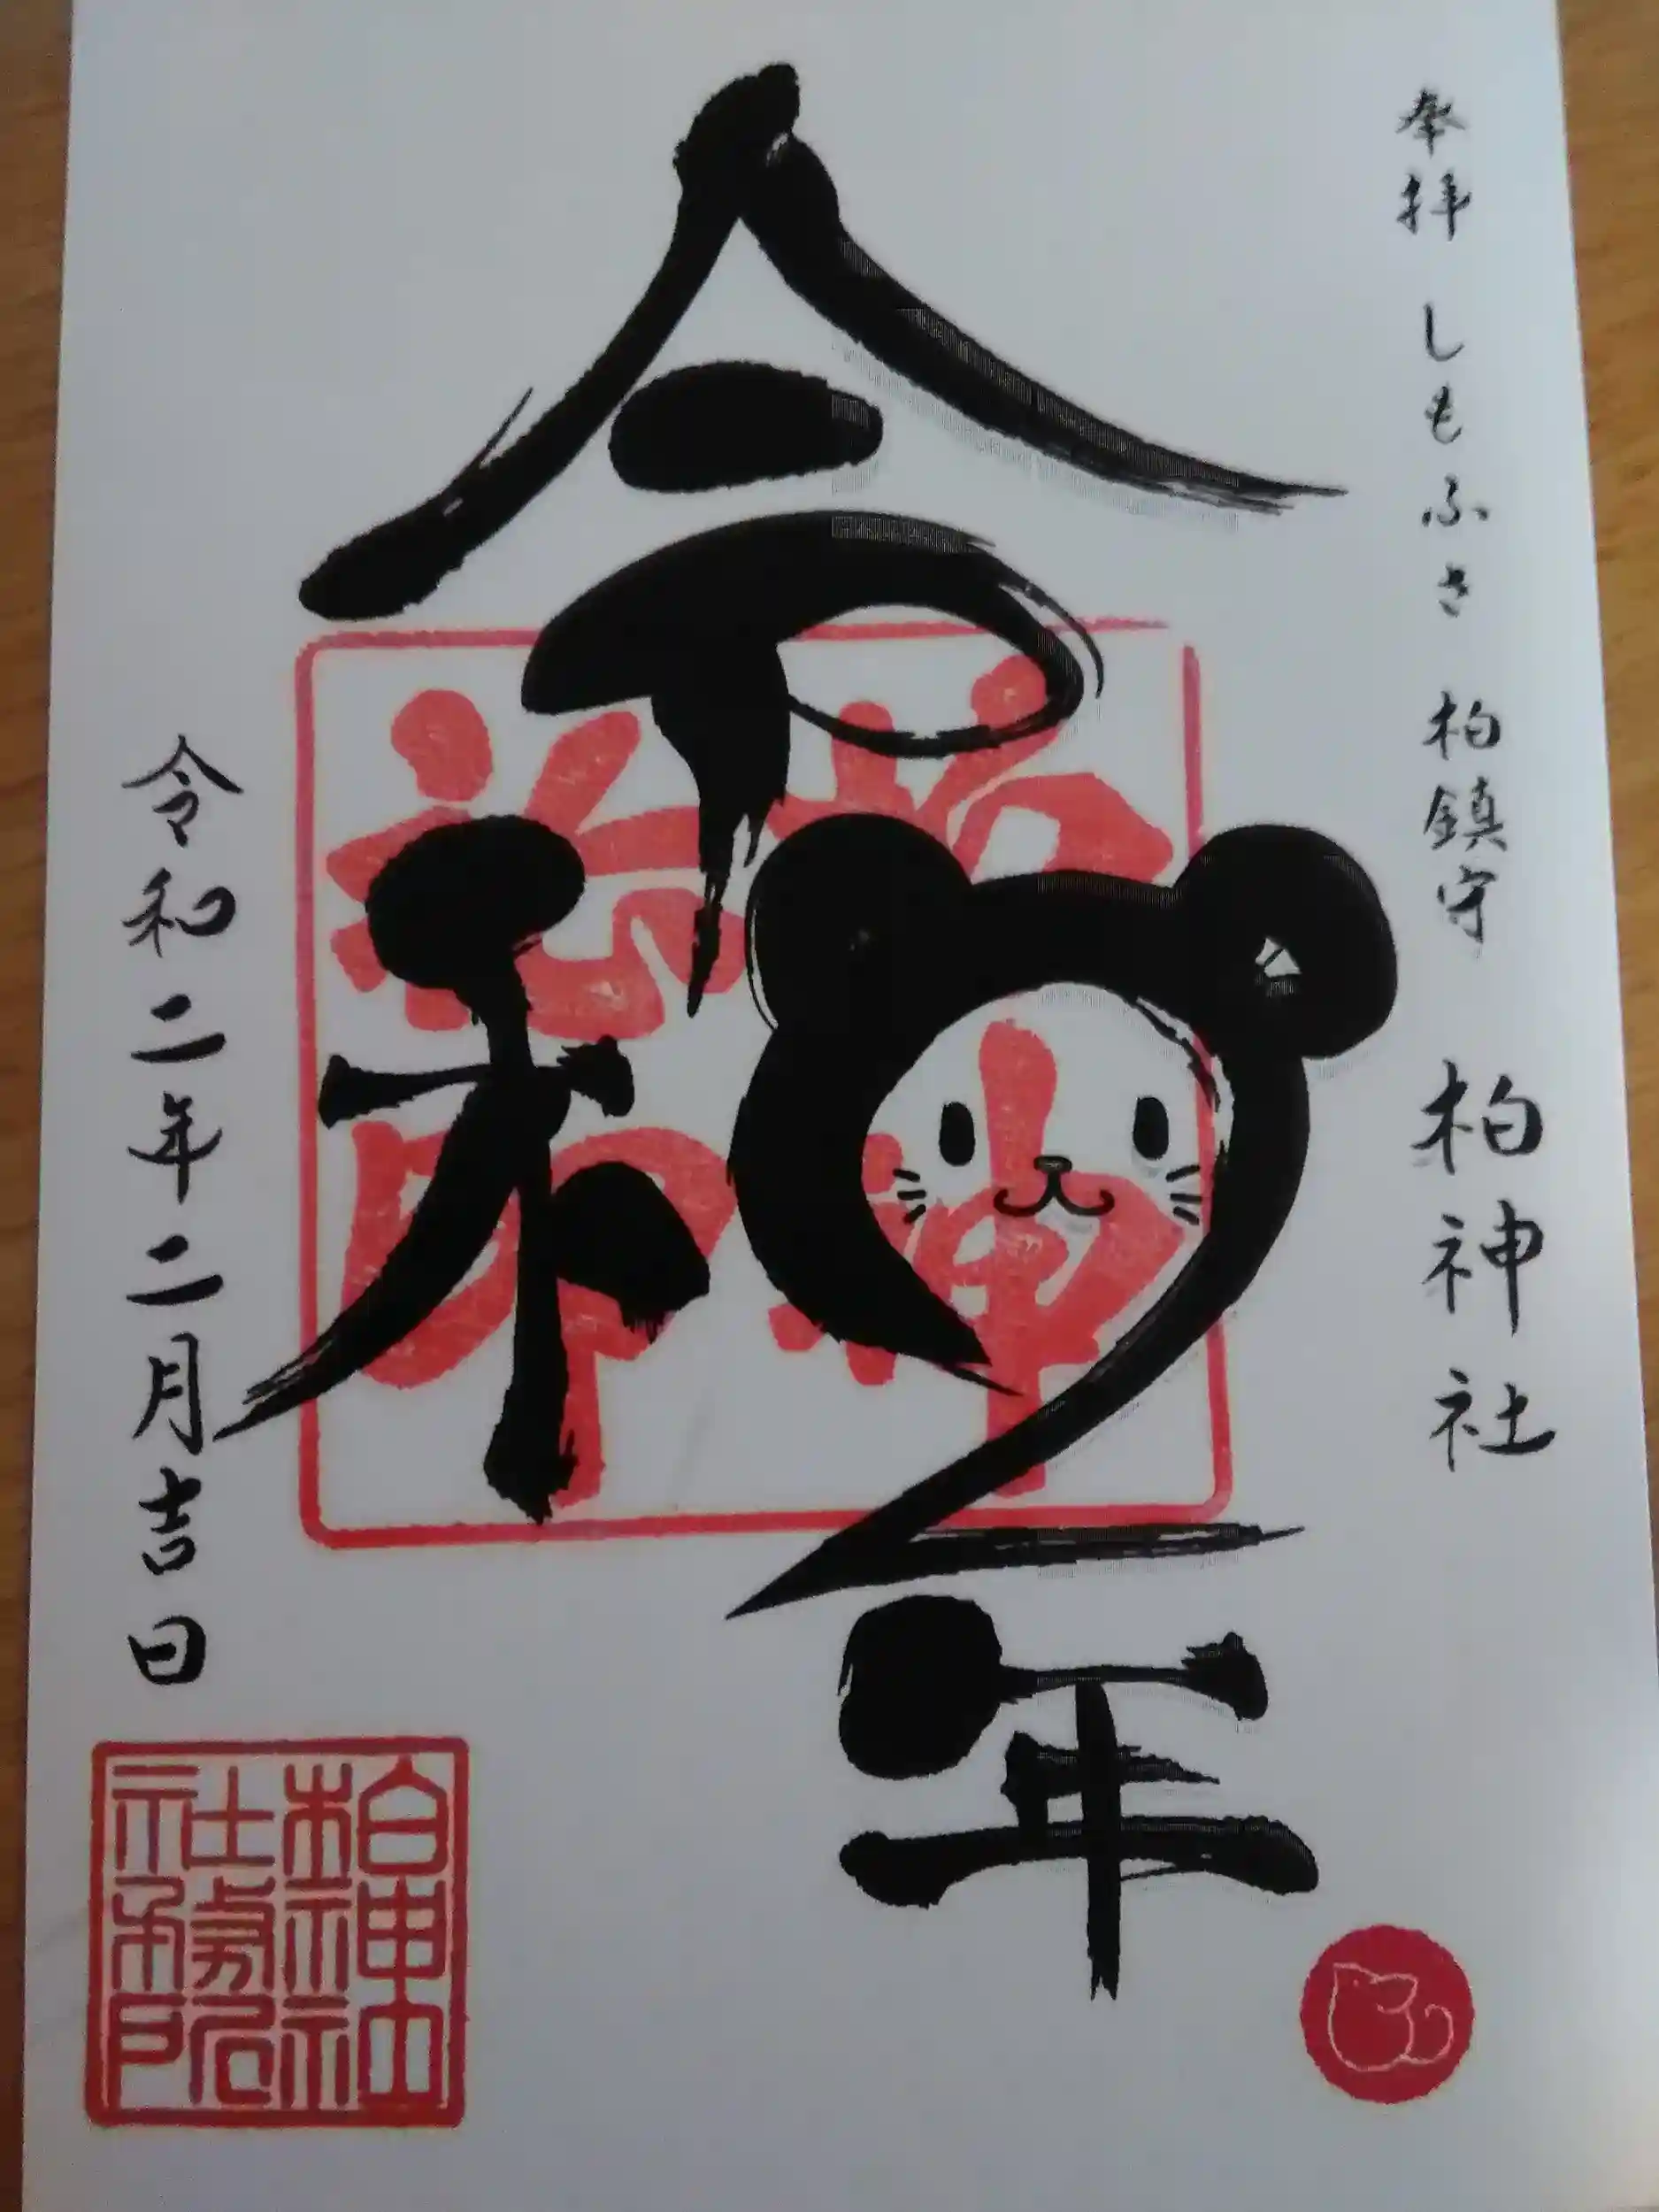 奉拝 しもふさ 柏鎮守 柏神社
令和二年
令和二年二月吉日
柏神社
社務所印